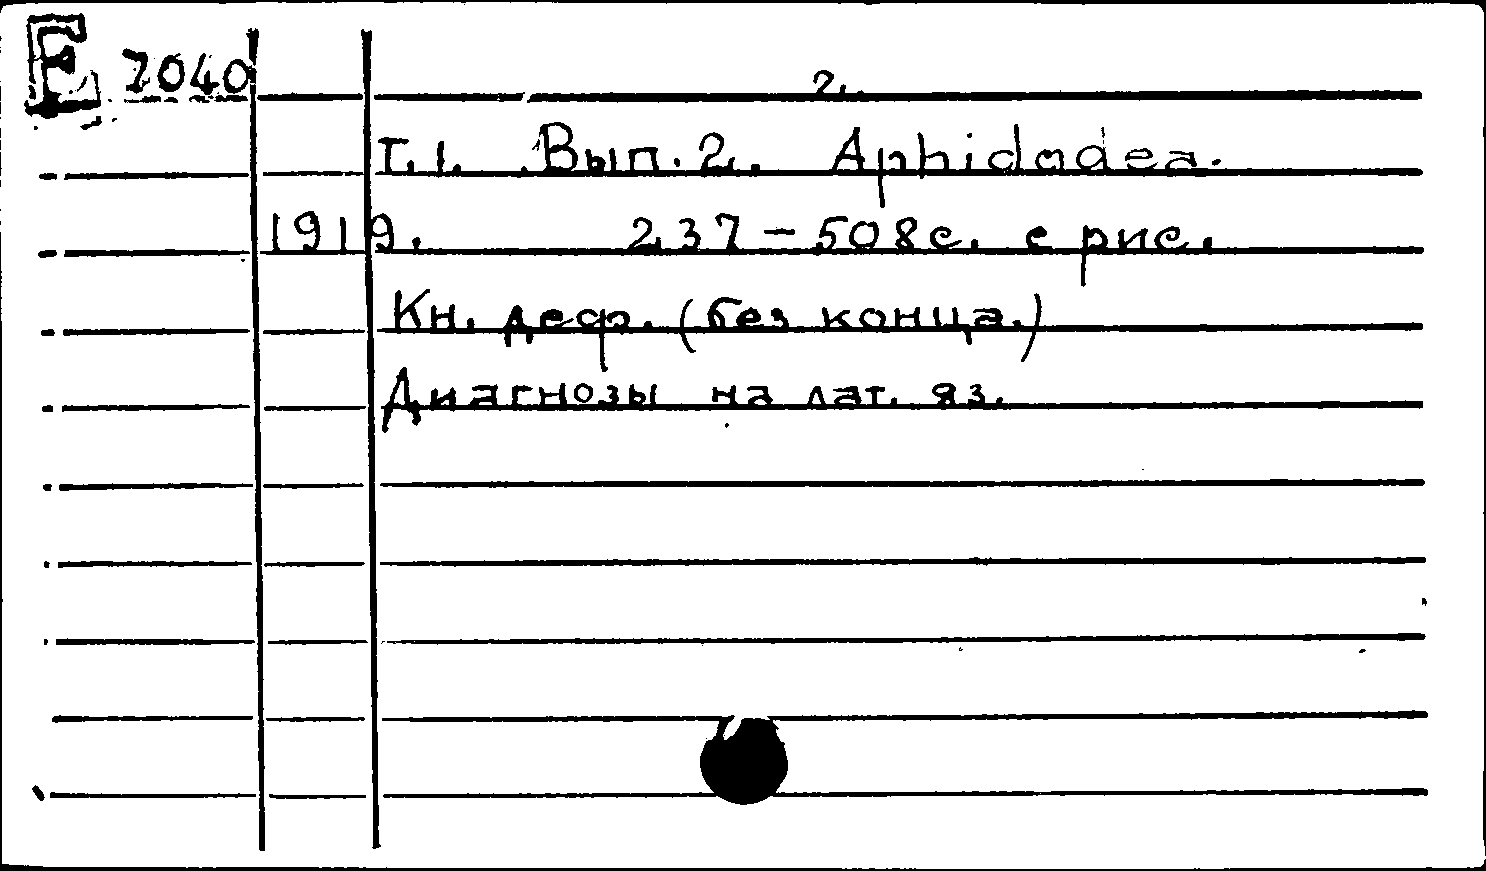 E 7040
2.
Т.1. Вып. 2. Aphidodea.
1919. 237-508с. с рис.
Кн. деф. (без конца.)
Диагнозы на лат. яз.